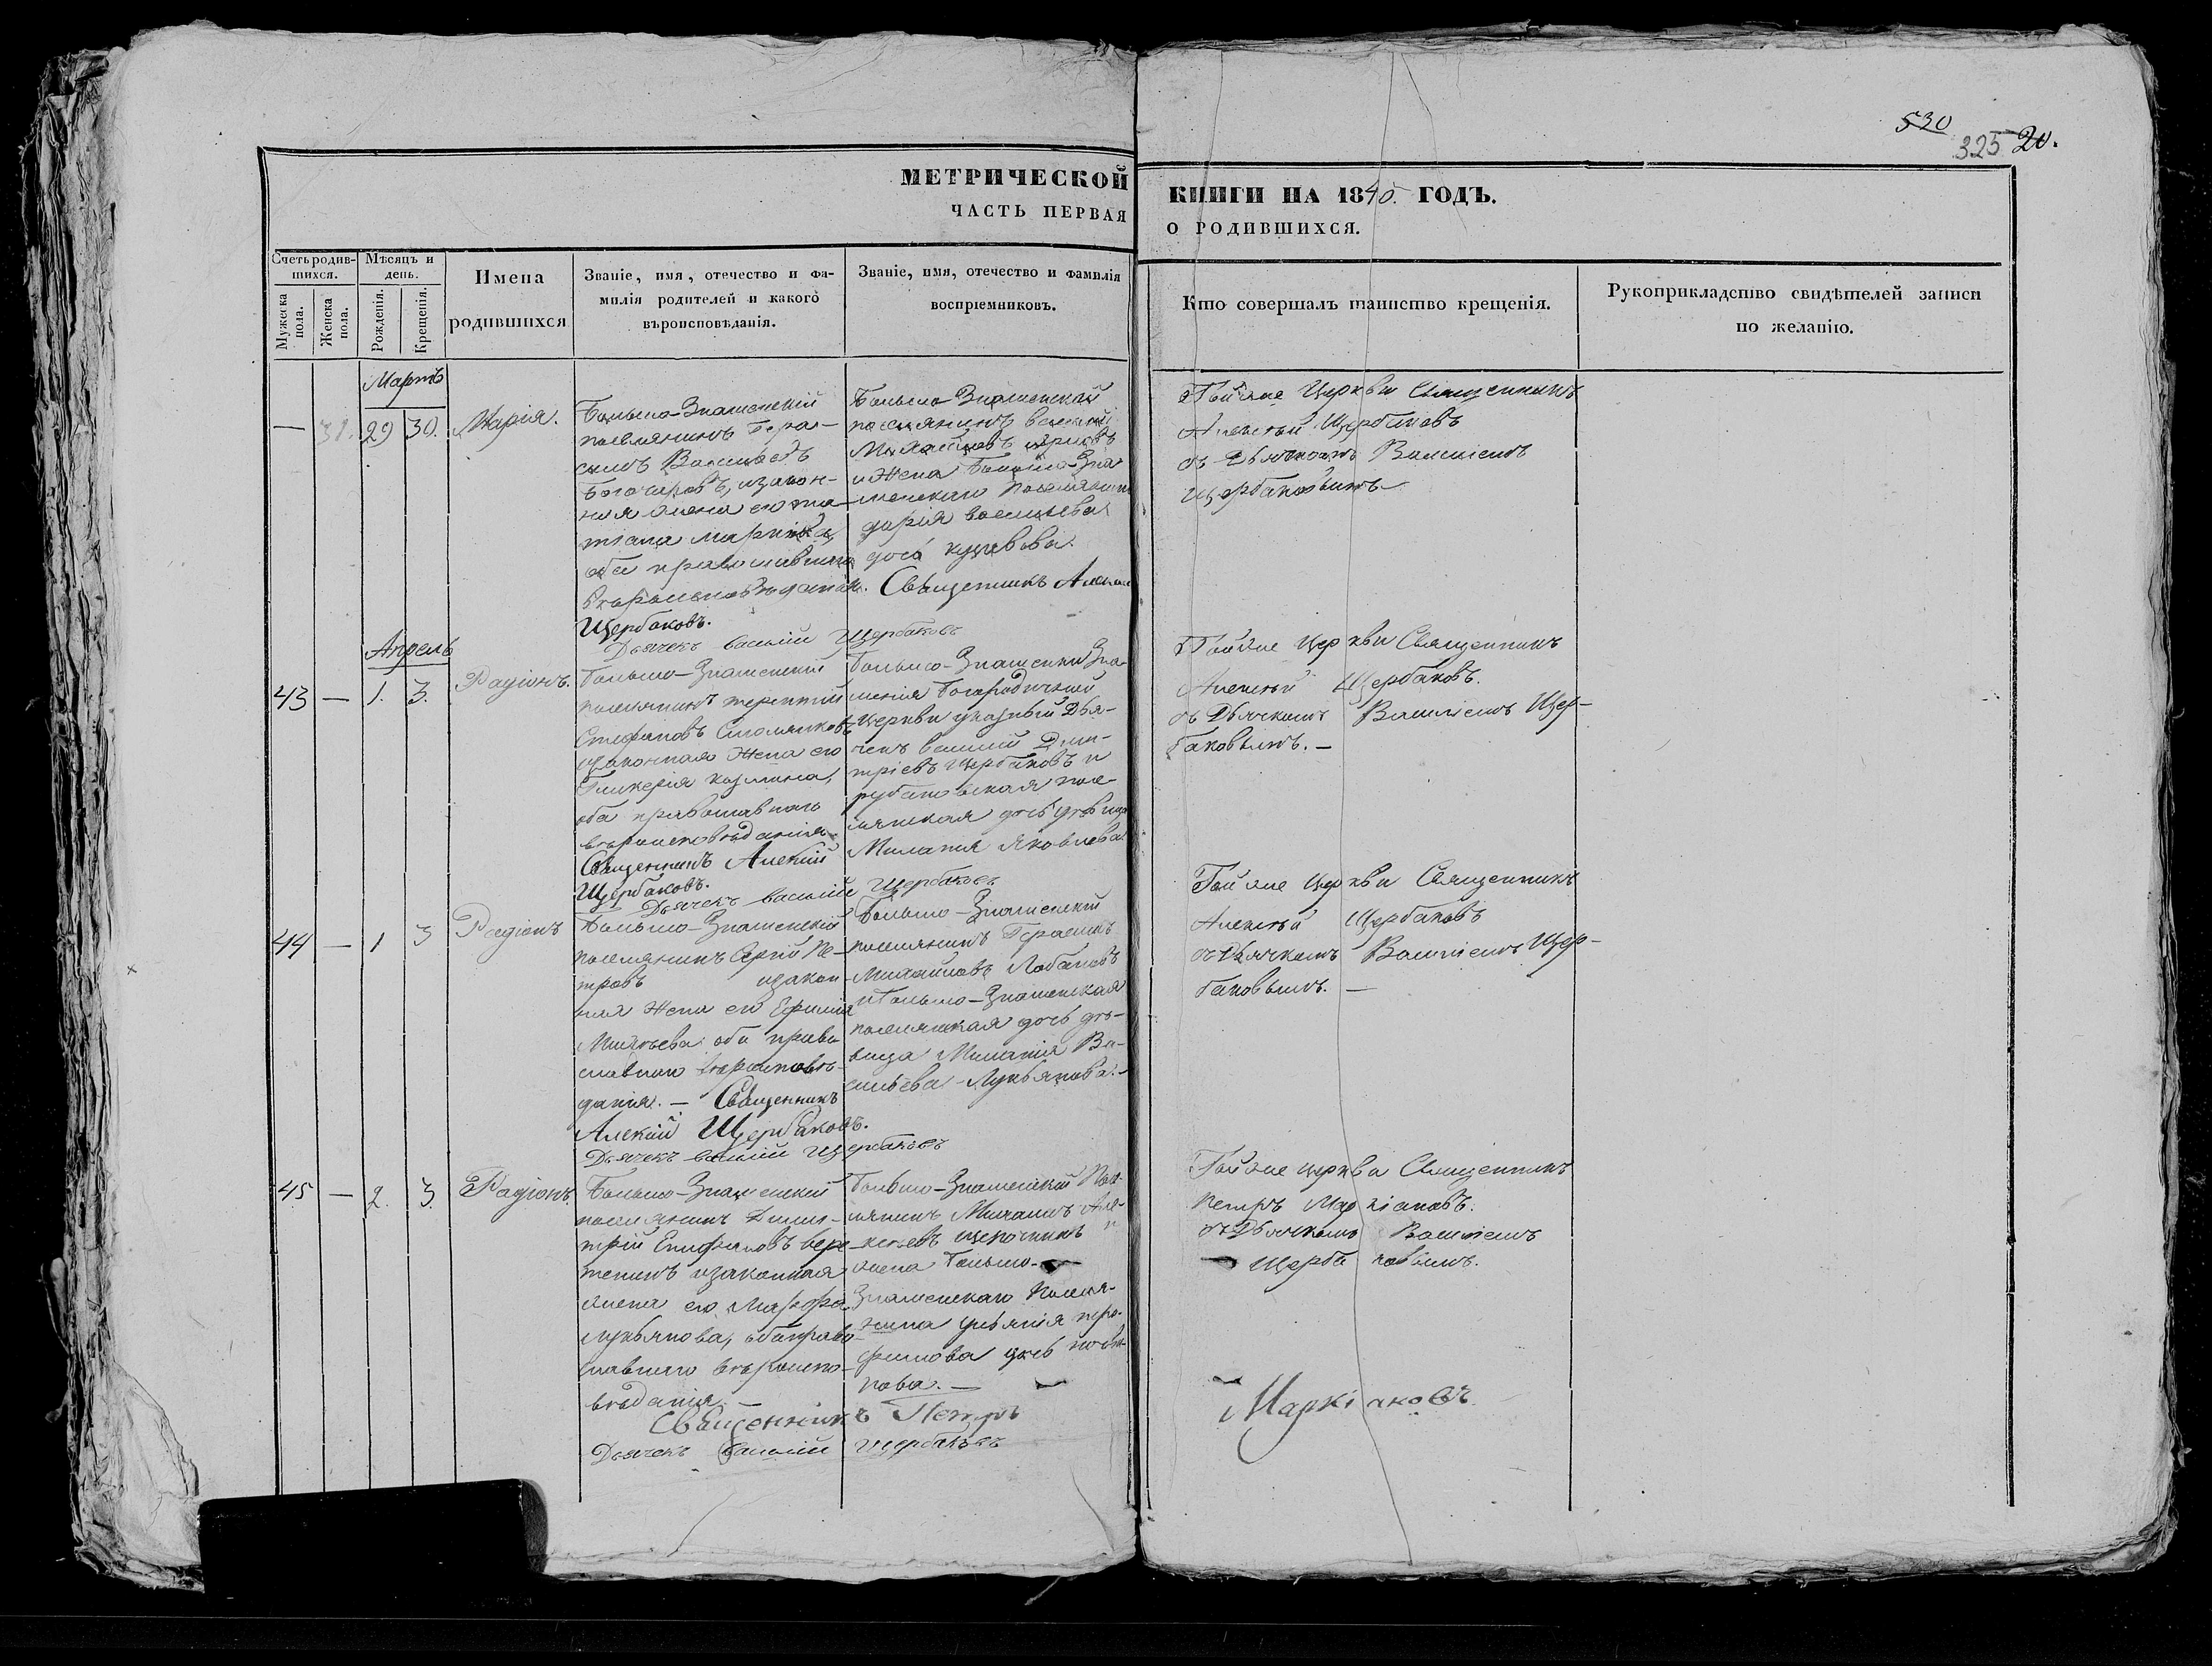 530
325 20.
МЕТРИЧЕСКОЙ КНИГИ НА 1840. ГОДЪ.
ЧАСТЬ ПЕРВАЯ О РОДИВШИХСЯ.
Счетъ родив-
шихся.
Мужеска
пола.
Женска
пола.
Мѣсяцъ и
день.
Рожденія.
Крещенія.
Имена
родившихся
Званіе, имя, отечество и фа-
милія родителей и какого
вѣроисповѣданія.
Званіе, имя, отечество и фамилія
воспріемниковъ.
Кто совершалъ таинство крещенія.
Рукоприкладство свидѣтелей записи
по желанію.
Мартъ
— 31. 29 30. Марія.
Больше-Знаменскій
поселянинъ Гера-
симъ
изакон-
ная жена его
оба православнаго
Священникъ
Щербаковъ.
Дьячекъ Василій Щербаковъ
Больше Знаменскай
поселянинъ
и Жена Больше Зна
менскаго поселянина
дарія васильева
Тойже Церкви Священникъ
Алексѣй Щербаковъ
съ Дьячкомъ Василіемъ
Щербаковымъ
Апрель
43 — 1. 3. Радіонъ.
Больше-Знаменскій
поселянинъ терентій
Стефановъ
изаконная Жена его
Гликерія козмина,
оба православнаго
вѣроисповѣданія
Священникъ Алексій
Щербаковъ.
Дьячекъ василій Щербаковъ
Больше-Знаменски Зна-
менія Богородичной
Церкви указный Дья-
чекъ василій Дми-
тріевъ Щербаковъ и
посе-
лянская дочь дѣвица
Миланія Яковлева
Тойже Церкви Священникъ
Алексѣй Щербаковъ.
съ Дьячкомъ Василіемъ Щер-
баковымъ. —
44 — 1 3 Радіонъ
Больше-Знаменскій
поселянинъ Сергій Пе-
тровъ изакон-
ная Жена его
оба право
славнаго вѣроисповѣ-
данія. — Священникъ
Алексій Щербаковъ.
Дьячекъ василій Щербаковъ
Больше-Знаменскій
поселянинъ Герасимъ
Михайловъ Лобановъ
и Больше-Знаменская
поселянская дочь дѣ-
вица Миланія Ва-
сильева Лукьянова. —
Тойже Церкви Священникъ
Алексѣй Щербаковъ
съ Дьячкомъ Василіемъ Щер-
баковымъ. —
45 — 2. 3. Радіонъ
Больше-Знаменскій
поселянинъ Димит-
рій Епифановъ вере-
тенинъ изаконная
жена его Марфа
лукьянова, оба право
славнаго вѣроиспо-
вѣданія. —
Священникъ Петръ Маркіановъ
Дьячекъ Василій Щербаковъ
Больше-Знаменскій Посе-
лянинъ
и
жена Больше-
Знаменскаго Поселя-
нина ульянія тро-
фимова дочь
нова. —
Тойже церкви Священникъ
петръ Маркіановъ.
съ Дьячкомъ Василіемъ
Щербаковымъ.